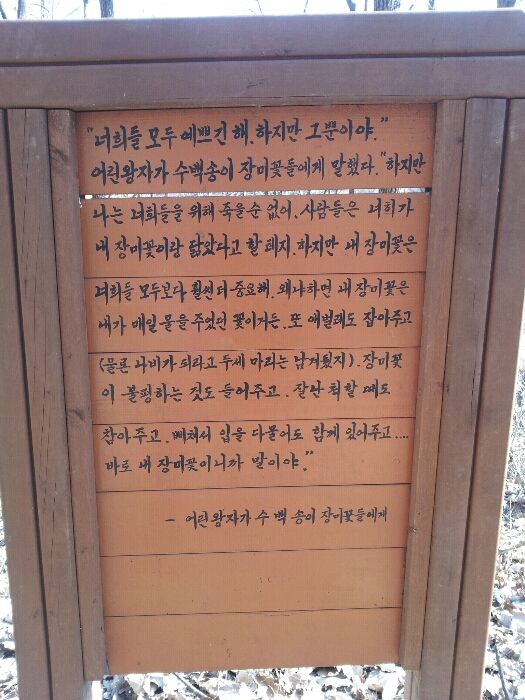 "너희들 모두 예쁘긴 해. 하지만 그뿐이야."
어린왕자가 수백송이 장미꽃들에게 말했다. "하지만
나는 너희들을 위해 죽을순 없어. 사람들은 너희가
내 장미꽃이랑 닮았다고 할 테지. 하지만 내 장미꽃은
너희들 모두보다 훨씬 더 중요해. 왜냐하면 내 장미꽃은
내가 매일 물을 주었던 꽃이거든. 또 애벌레도 잡아주고
(물론 나비가 되라고 두세 마리는 남겨뒀지). 장미꽃
이 불평하는 것도 들어주고. 잘난 척할 때도
참아주고. 삐쳐서 입을 다물어도 함께 있어주고....
바로 내 장미꽃이니까 말이야."
- 어린왕자가 수 백 송이 장미꽃들에게